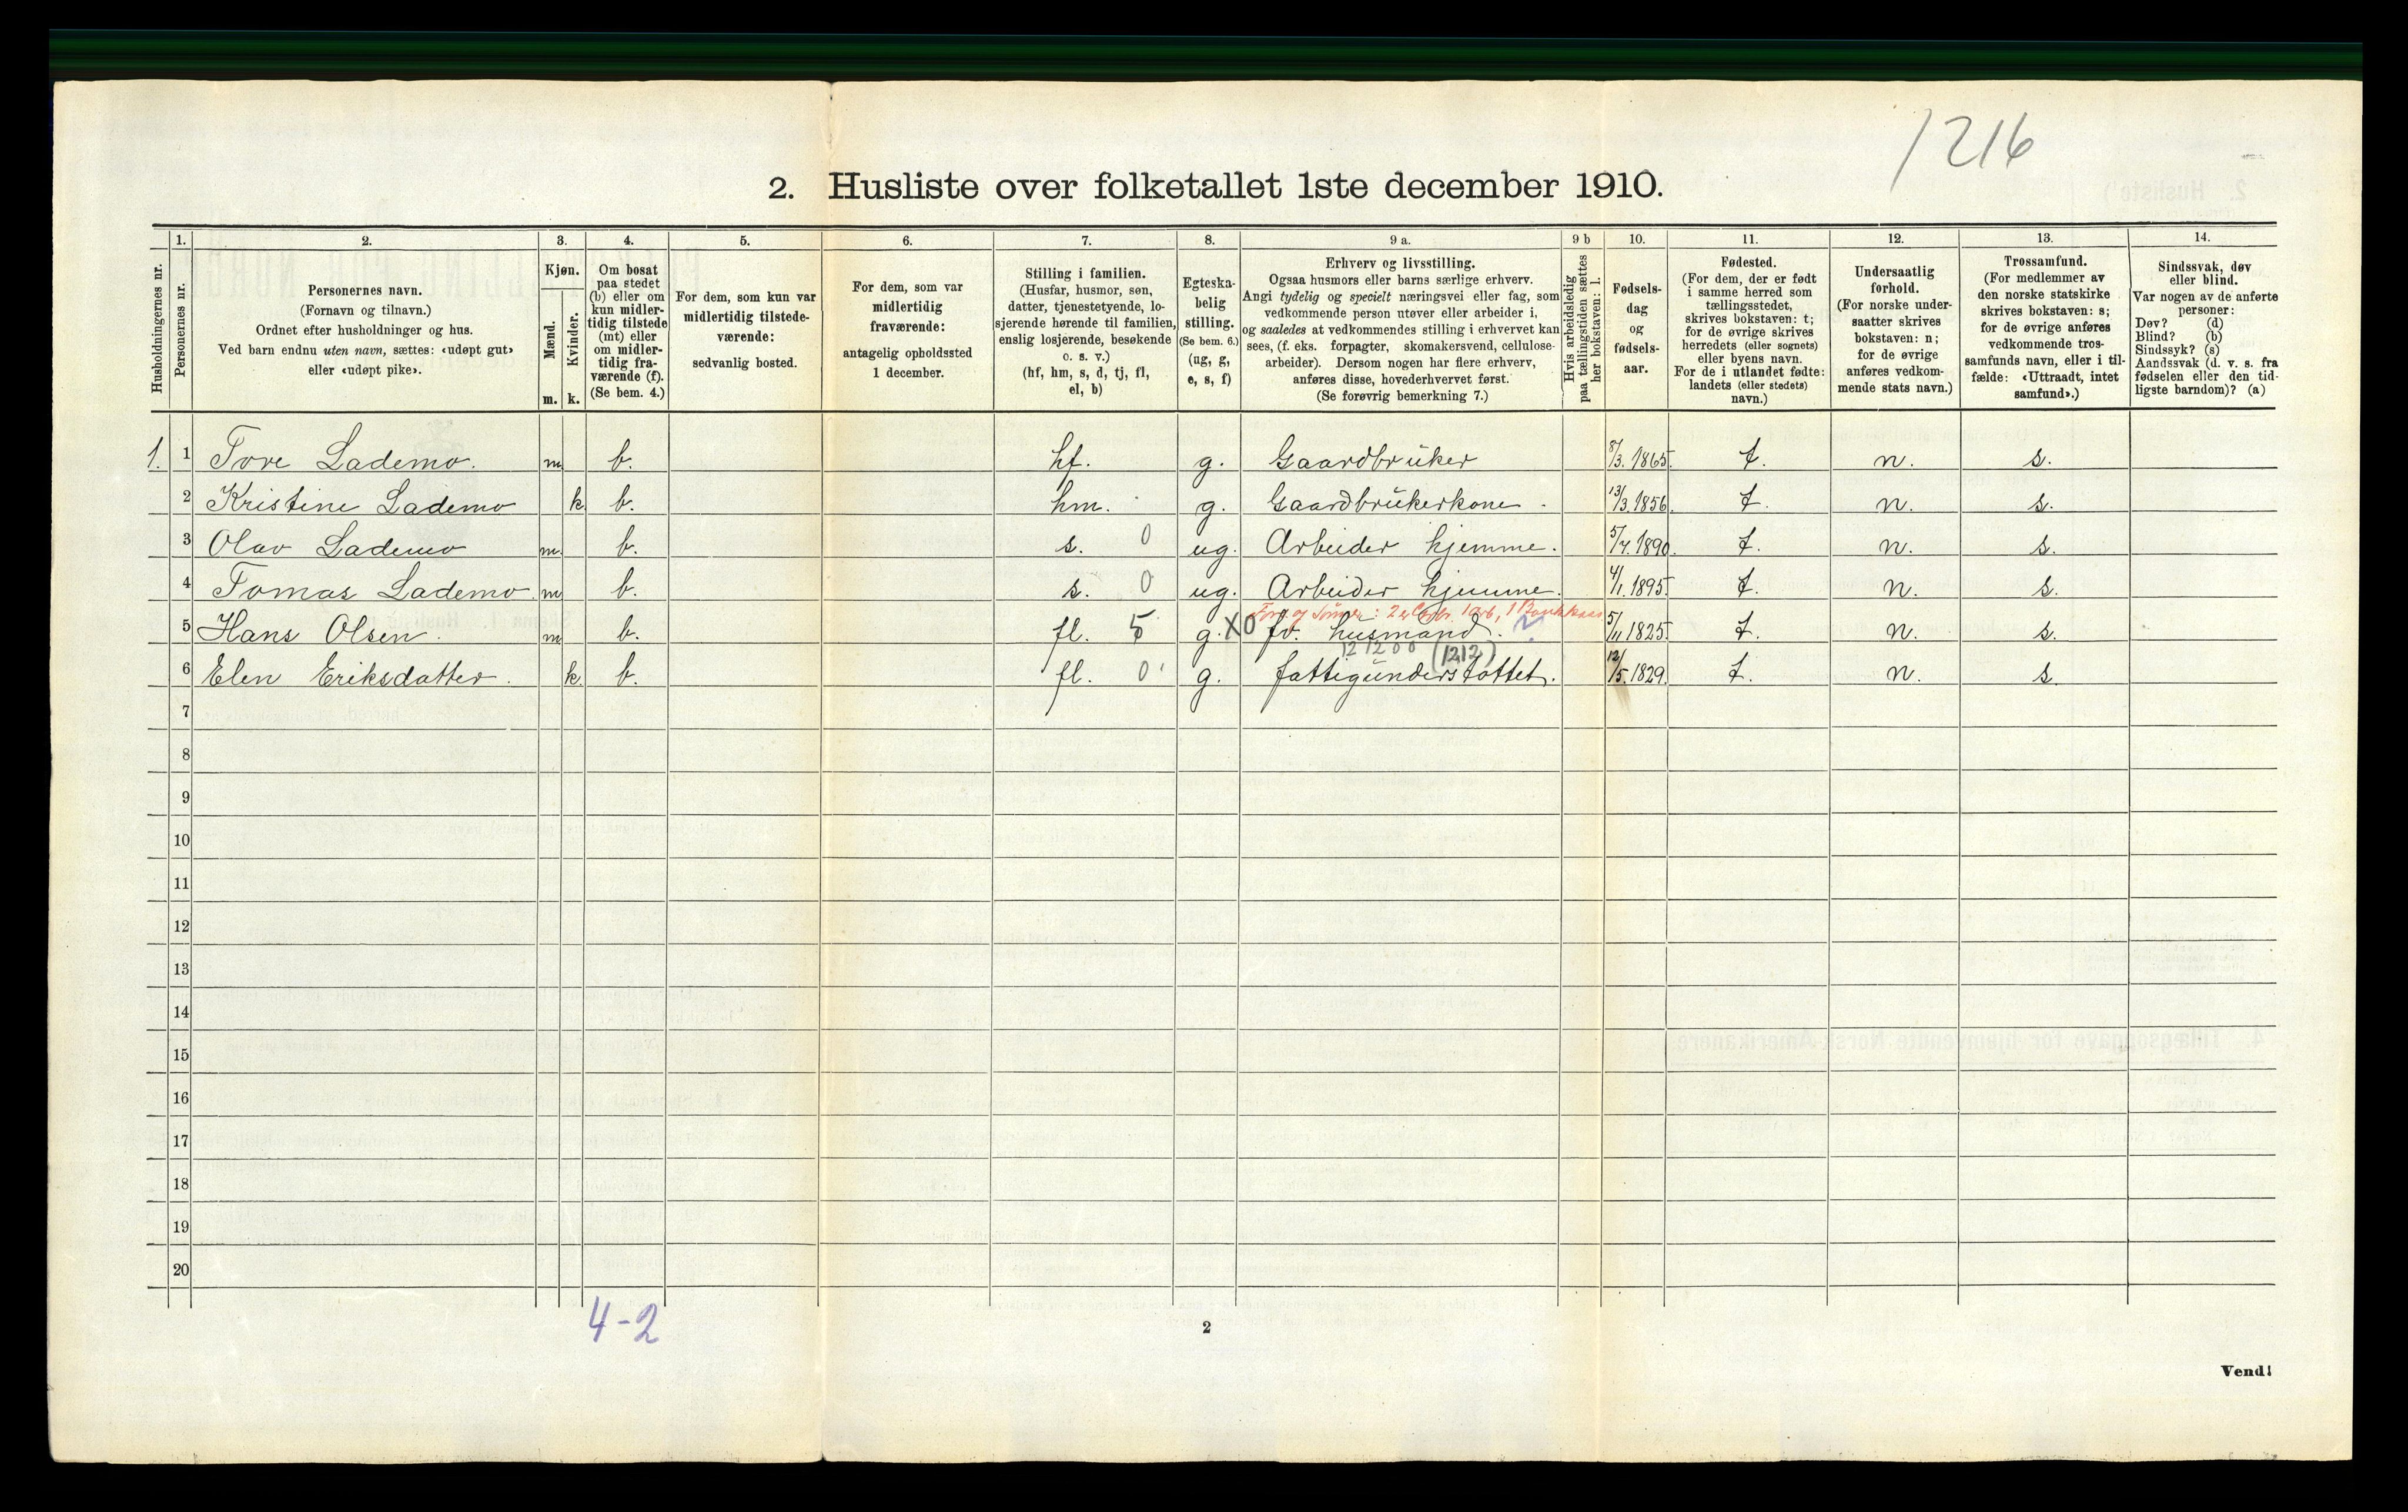 1216
2. Husliste over folketallet 1ste december 1910.
Husholdningernes nr.
1. Personernes nr.
2. Personernes navn.
(Fornavn og tilnavn.)
Ordnet efter husholdninger og hus.
Ved barn endnu uten navn, sættes: «udøpt gut»
eller «udøpt pike».
3. Kjøn.
Mænd. Kvinder.
m. k.
4. Om bosat
paa stedet
(b) eller om
kun midler-
tidig tilstede
(mt) eller
om midler-
tidig fra-
værende (f).
(Se bem. 4.)
5. For dem, som kun var
midlertidig tilstede-
værende:
sedvanlig bosted.
6. For dem, som var
midlertidig
fraværende:
antagelig opholdssted
1 december.
7. Stilling i familien.
(Husfar, husmor, søn,
datter, tjenestetyende, lo-
sjerende hørende til familien,
enslig losjerende, besøkende
o. s. v.)
(hf, hm, s, d, tj, fl,
el, b)
8. Egteska-
belig
stilling.
(Se bem. 6.)
(ug, g,
e, s, f)
9 a. Erhverv og livsstilling.
Ogsaa husmors eller barns særlige erhverv.
Angi tydelig og specielt næringsvei eller fag, som
vedkommende person utøver eller arbeider i,
og saaledes at vedkommendes stilling i erhvervet kan
sees, (f. eks. forpagter, skomakersvend, cellulose-
arbeider). Dersom nogen har flere erhverv,
anføres disse, hovederhvervet først.
(Se forøvrig bemerkning 7.)
9 b Hvis arbeidsledig
paa tællingstiden sættes
her bokstaven: l.
10. Fødsels-
dag
og
fødsels-
aar.
11. Fødested.
(For dem, der er født
i samme herred som
tællingsstedet,
skrives bokstaven: t;
for de øvrige skrives
herredets (eller sognets)
eller byens navn.
For de i utlandet fødte:
landets (eller stedets)
navn.)
12. Undersaatlig
forhold.
(For norske under-
saatter skrives
bokstaven: n;
for de øvrige
anføres vedkom-
mende stats navn.)
13. Trossamfund.
(For medlemmer av
den norske statskirke
skrives bokstaven: s;
for de øvrige anføres
vedkommende tros-
samfunds navn, eller i til-
fælde: «Uttraadt, intet
samfund».)
14. Sindssvak, døv
eller blind.
Var nogen av de anførte
personer:
Døv? (d)
Blind? (b)
Sindssyk? (s)
Aandssvak (d. v. s. fra
fødselen eller den tid-
ligste barndom)? (a)
1. 1 Tore Lademo. m b. hf. g. Gaardbrüker 8/3. 1865. t. n. s.
2 Kristine Lademo k b. hm. g. Gaardbrükerkone. 13/3. 1856. t. n. s.
3 Olav Lademo m. b. s. 0 ug. Arbeider hjemme. 5/7. 1890. t. n. s.
4 Tomas Lademo. m b. s. 0 ug. Arbeider hjemme. 4/1. 1895. t. n. s.
5 Hans Olsen. m b. fl. 5 g. X0 fv. husmand. 5/11 1825. t. n. s.
121200 (1212)
6 Elen Eriksdatter. k. b. fl. 0 g. fattigünderstøttet. 12/5. 1829. t. n. s.
7
8
9
10
11
12
13
14
15
16
17
18
19
20
4-2
2
Vend!